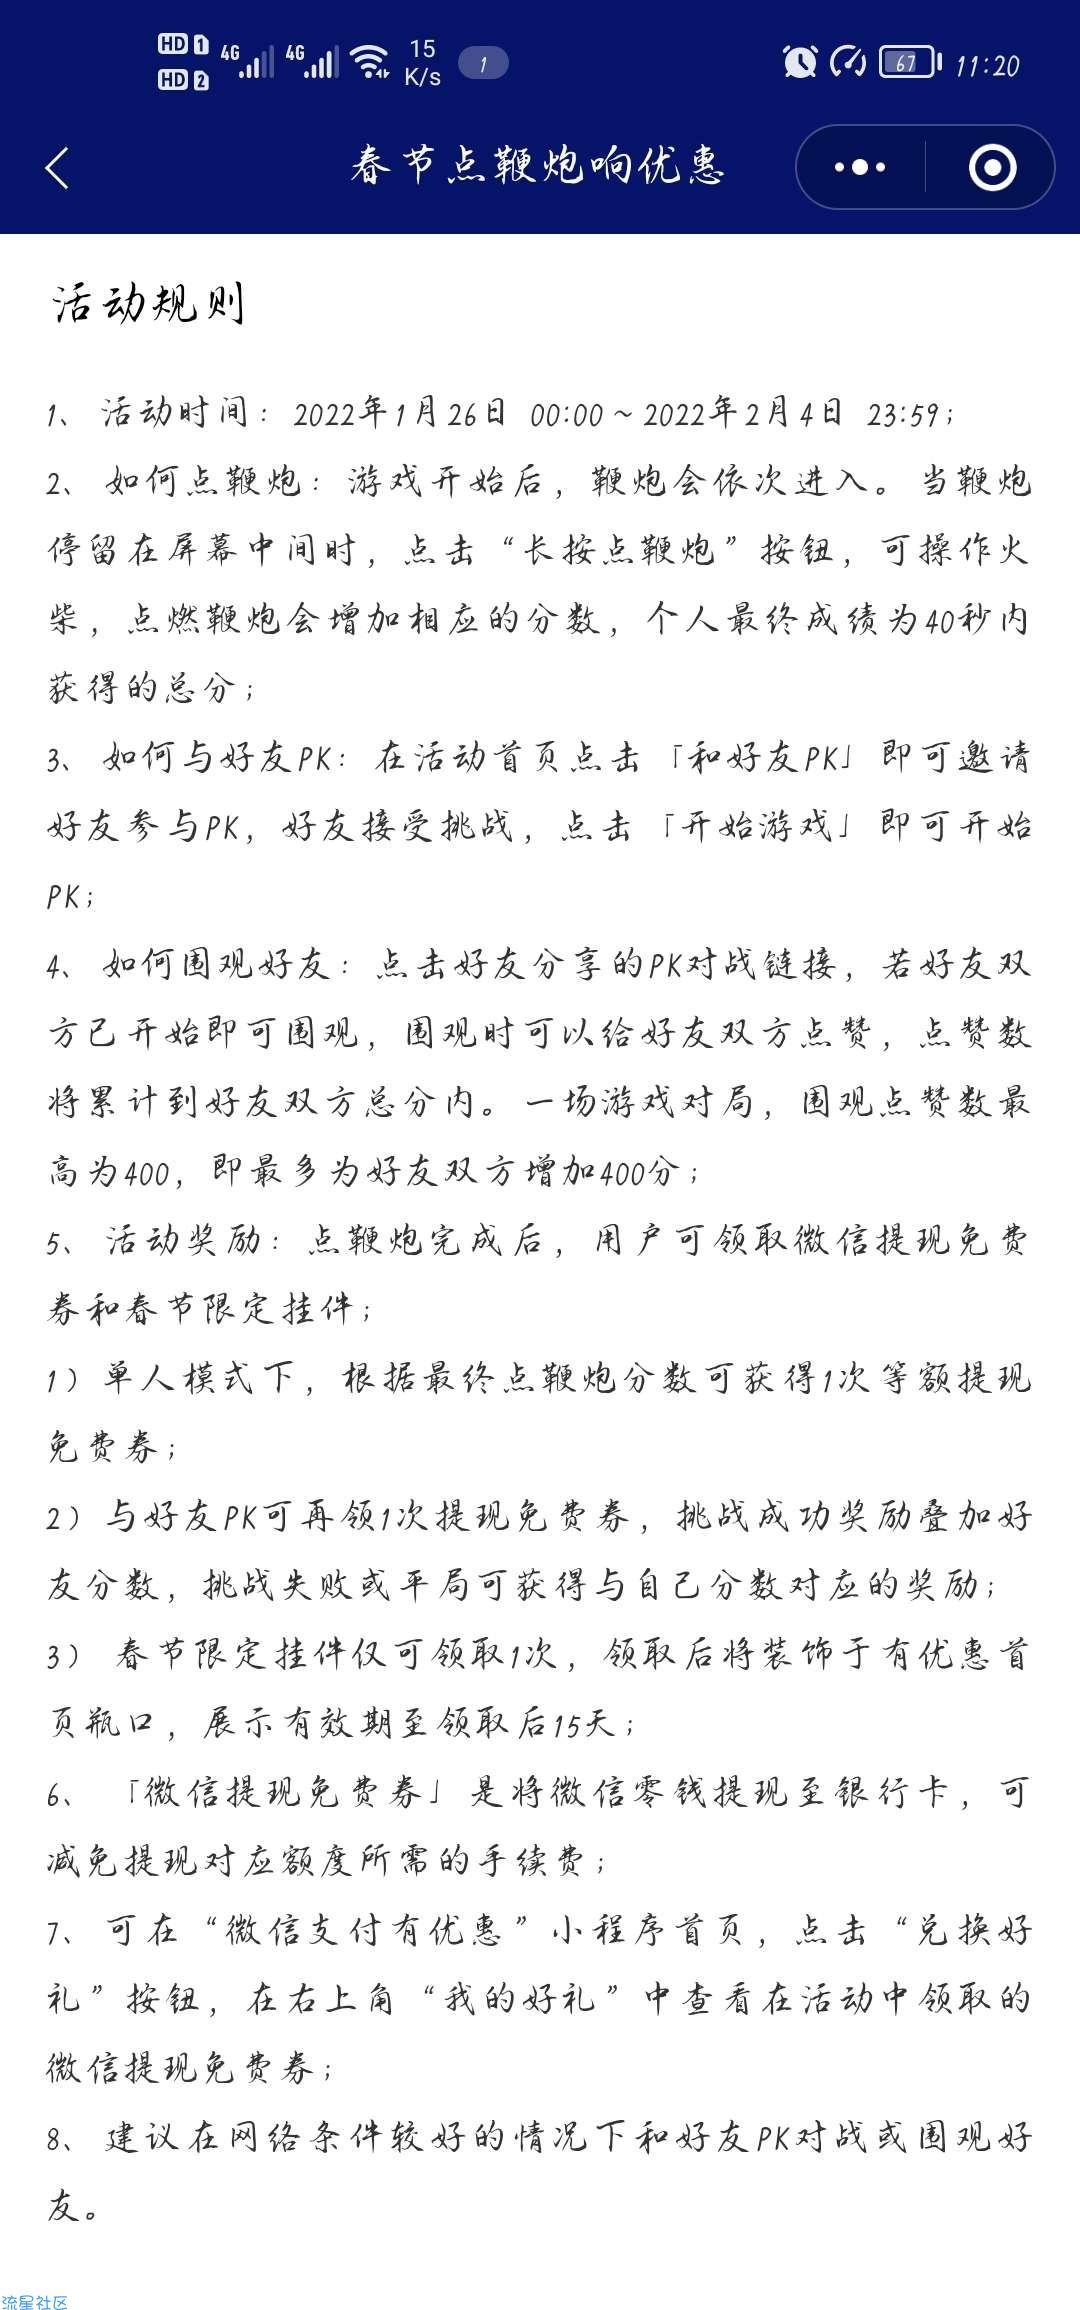 HD 1 4G 4G 15 1 67 11:20
HD 2 K/s
春节点鞭炮响优惠
活动规则
1、活动时间：2022年1月26日 00:00～2022年2月4日 23:59；
2、如何点鞭炮：游戏开始后，鞭炮会依次进入。当鞭炮
停留在屏幕中间时，点击“长按点鞭炮”按钮，可操作火
柴，点燃鞭炮会增加相应的分数，个人最终成绩为40秒内
获得的总分；
3、如何与好友PK：在活动首页点击「和好友PK」即可邀请
好友参与PK，好友接受挑战，点击「开始游戏」即可开始
PK；
4、如何围观好友：点击好友分享的PK对战链接，若好友双
方已开始即可围观，围观时可以给好友双方点赞，点赞数
将累计到好友双方总分内。一场游戏对局，围观点赞数最
高为400，即最多为好友双方增加400分；
5、活动奖励：点鞭炮完成后，用户可领取微信提现免费
券和春节限定挂件；
1）单人模式下，根据最终点鞭炮分数可获得1次等额提现
免费券；
2）与好友PK可再领1次提现免费券，挑战成功奖励叠加好
友分数，挑战失败或平局可获得与自己分数对应的奖励；
3） 春节限定挂件仅可领取1次，领取后将装饰于有优惠首
页瓶口，展示有效期至领取后15天；
6、「微信提现免费券」是将微信零钱提现至银行卡，可
减免提现对应额度所需的手续费；
7、可在“微信支付有优惠”小程序首页，点击“兑换好
礼”按钮，在右上角“我的好礼”中查看在活动中领取的
微信提现免费券；
8、建议在网络条件较好的情况下和好友PK对战或围观好
友。
流星社区